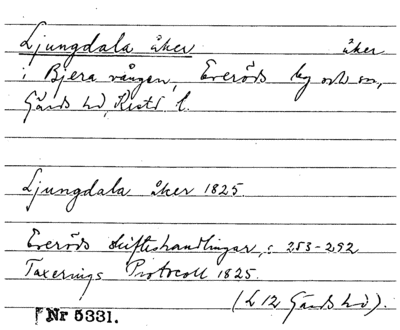 Ljungdala åker åker
i Bjera vången, Everöds by och sn,
Gärds hd, Krists l.
Ljungdala åker 1825.
Everöds skifteshandlingar, s. 253-292
Taxerings Protocoll 1825.
(L 12 Gärds hd).
Nr 5331.